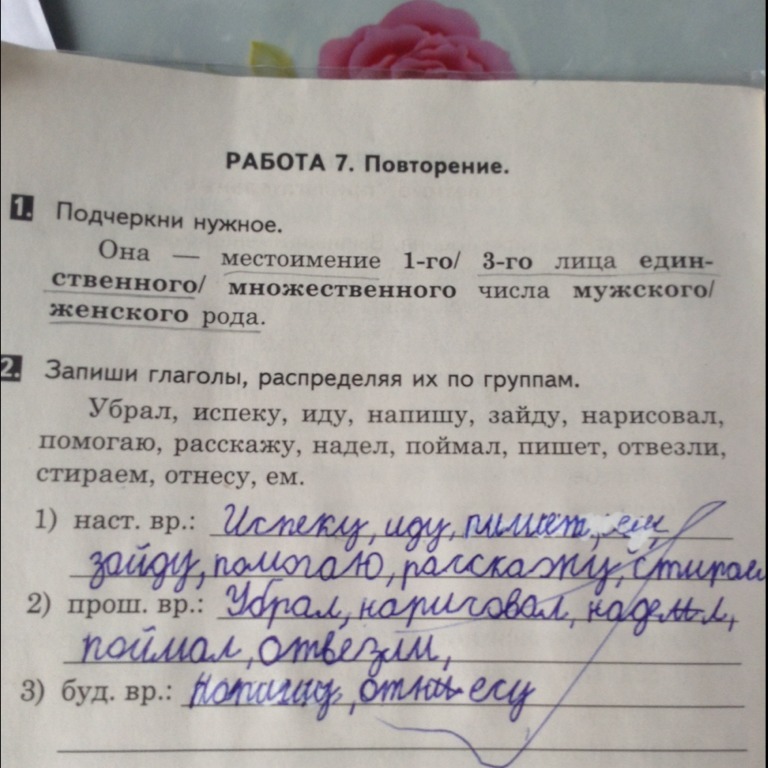 РАБОТА 7. Повторение.
1. Подчеркни нужное.
Она — местоимение 1-го/ 3-го лица един-
ственного/ множественного числа мужского/
женского рода.
2. Запиши глаголы, распределяя их по группам.
Убрал, испеку, иду, напишу, зайду, нарисовал,
помогаю, расскажу, надел, поймал, пишет, отвезли,
стираем, отнесу, ем.
1) наст. вр.: Испеку, иду, пишет, ем,
зайду, помогаю, расскажу, стираем
2) прош. вр.: Убрал, нарисовал, надел,
поймал, отвезли,
3) буд. вр.: Напишу, отнесу